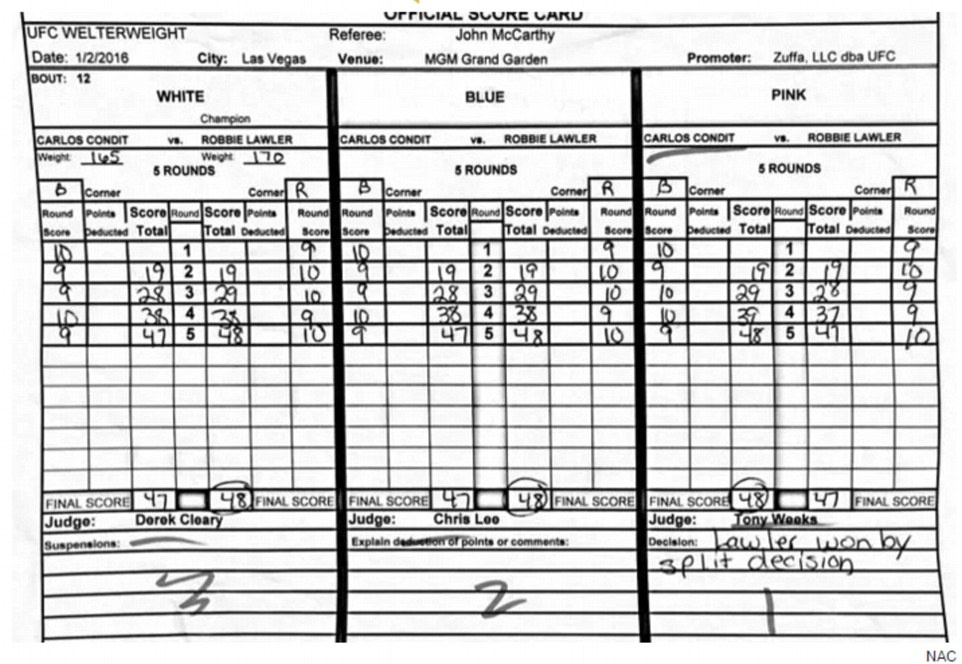 OFFICIAL SCORE CARD
UFC WELTERWEIGHT Referee: John McCarthy
Date: 1/2/2016 City: Las Vegas Venue: MGM Grand Garden Promoter: Zuffa, LLC dba UFC
BOUT: 12
WHITE BLUE PINK
Champion
CARLOS CONDIT vs. ROBBIE LAWLER CARLOS CONDIT vs. ROBBIE LAWLER CARLOS CONDIT vs. ROBBIE LAWLER
Weight: 165 Weight: 170
5 ROUNDS 5 ROUNDS 5 ROUNDS
B Corner Corner R B Corner Corner R B Corner Corner R
Round Points Score Round Score Points Round Round Points Score Round Score Points Round Round Points Score Round Score Points Round
Score Deducted Total Total Deducted Score Score Deducted Total Total Deducted Score Score Deducted Total Total Deducted Score
10 1 9 10 1 9 10 1 9
9 19 2 19 10 9 19 2 19 10 9 19 2 19 10
9 28 3 29 10 9 28 3 29 10 10 29 3 28 9
10 38 4 38 9 10 38 4 38 9 10 39 4 37 9
9 47 5 48 10 9 47 5 48 10 9 48 5 47 10
FINAL SCORE 47 48 FINAL SCORE FINAL SCORE 47 48 FINAL SCORE FINAL SCORE 48 47 FINAL SCORE
Judge: Derek Cleary Judge: Chris Lee Judge: Tony Weeks
Suspensions: Explain deduction of points or comments: Decision: Lawler won by
split decision
3 2 1
NAC